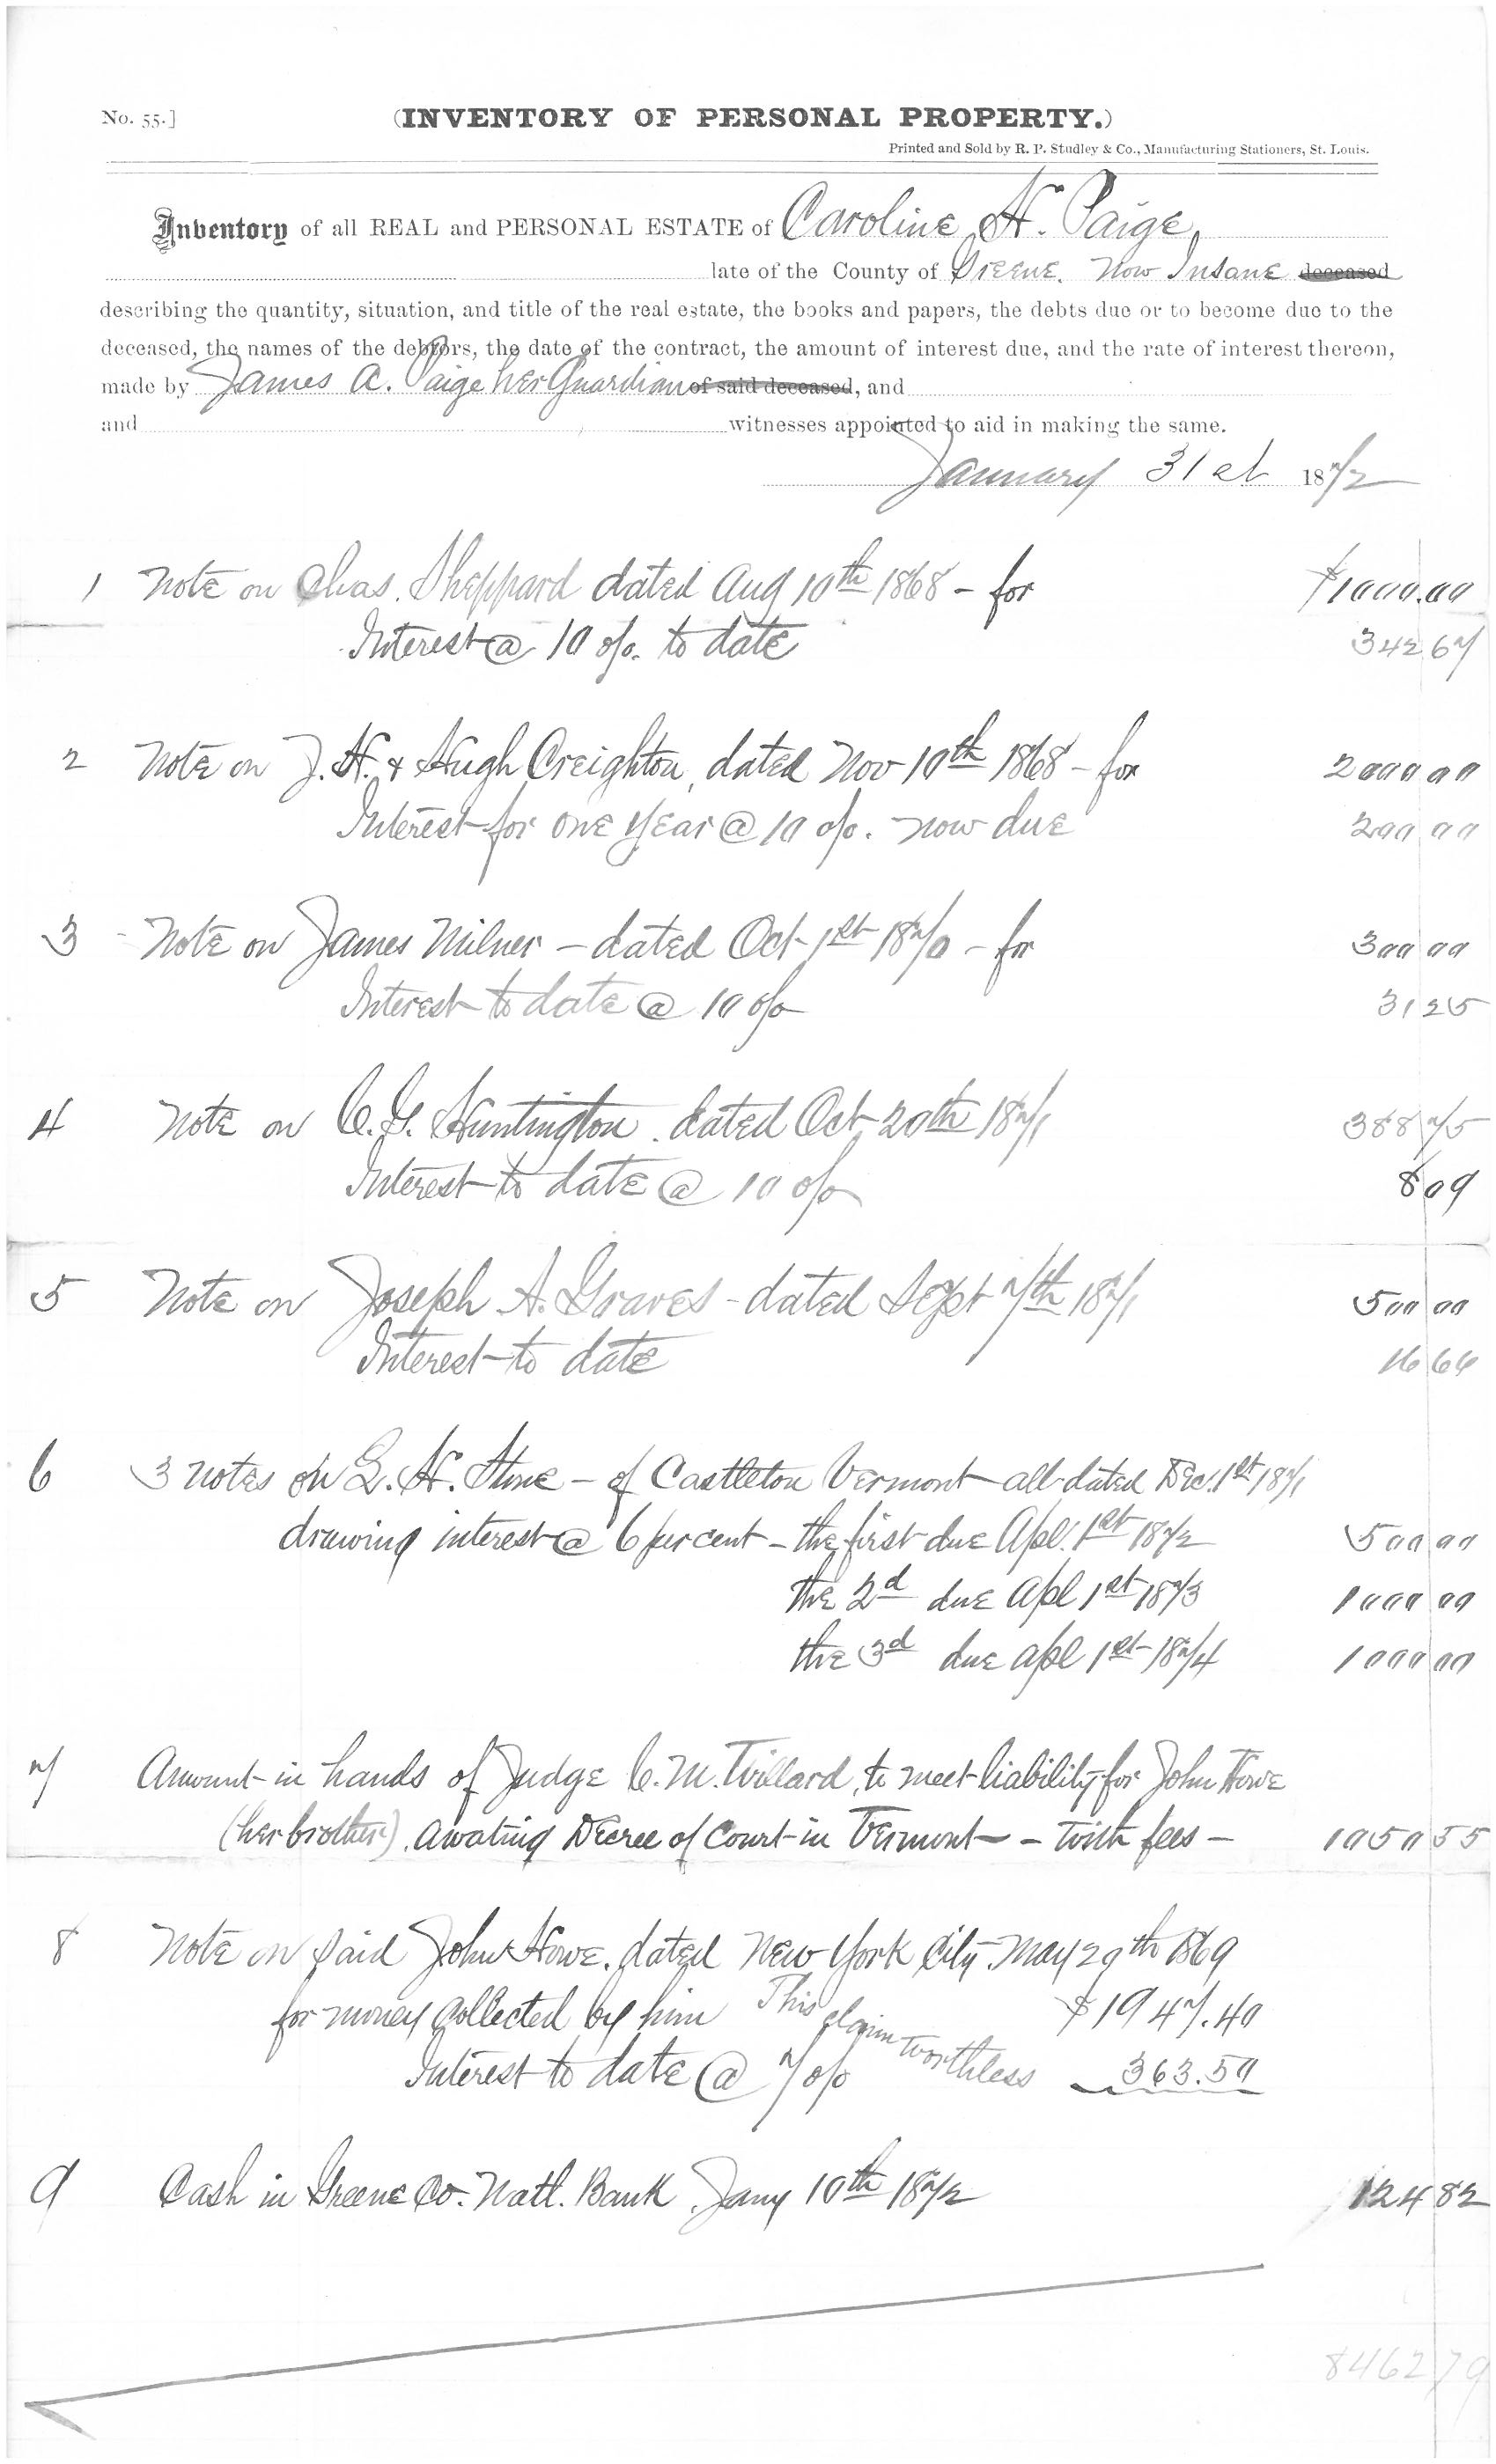 No. 55.]
(INVENTORY OF PERSONAL PROPERTY.)
Printed and Sold by R. P. Studley & Co., Manufacturing Stationers, St. Louis.
Inventory of all REAL and PERSONAL ESTATE of Caroline H. Paige,
late of the County of Greene. Now Insane deceased
describing the quantity, situation, and title of the real estate, the books and papers, the debts due or to become due to the
deceased, the names of the debtors, the date of the contract, the amount of interest due, and the rate of interest thereon,
made by James A. Paige her Guardian of said deceased, and
and witnesses appointed to aid in making the same.
January 31st 1872
1 Note on Chas. Sheppard dated Aug 10th 1868 - for $1000.00
Interest @ 10 o/o. to date 342 67
2 Note on J. H. & Hugh Creighton, dated Nov 10th 1868 - for 2000 00
Interest for one year @ 10 o/o. now due 200 00
3 Note on James Milner - dated Oct 1st 1870 - for 300 00
Interest to date @ 10 o/o 31 25
4 Note on C. G. Huntington. dated Oct 20th 1871 388 75
Interest to date @ 10 o/o 8 09
5 Note on Joseph A. Graves - dated Sept 7th 1871 500 00
Interest to date 16 66
6 3 notes on L. H. Stone - of Castleton Vermont all dated Dec. 1st 1871
drawing interest @ 6 per cent - the first due Apl. 1st 1872 500 00
the 2d due Apl 1st 1873 1000 00
the 3d due apl 1st 1874 1000 00
7 Amount in hands of Judge C. M. Willard, to meet liability for John Howe
(her brother). Awating Decree of Court in Vermont - with fees - 1050 55
8 Note on said John Howe. dated New York City May 29th 1869
for money collected by him This claim worthless $1947.40
Interest to date @ 7 o/o 363.50
9 Cash in Greene Co. Natl. Bank. Jany 10th 1872 124 82
8462 79